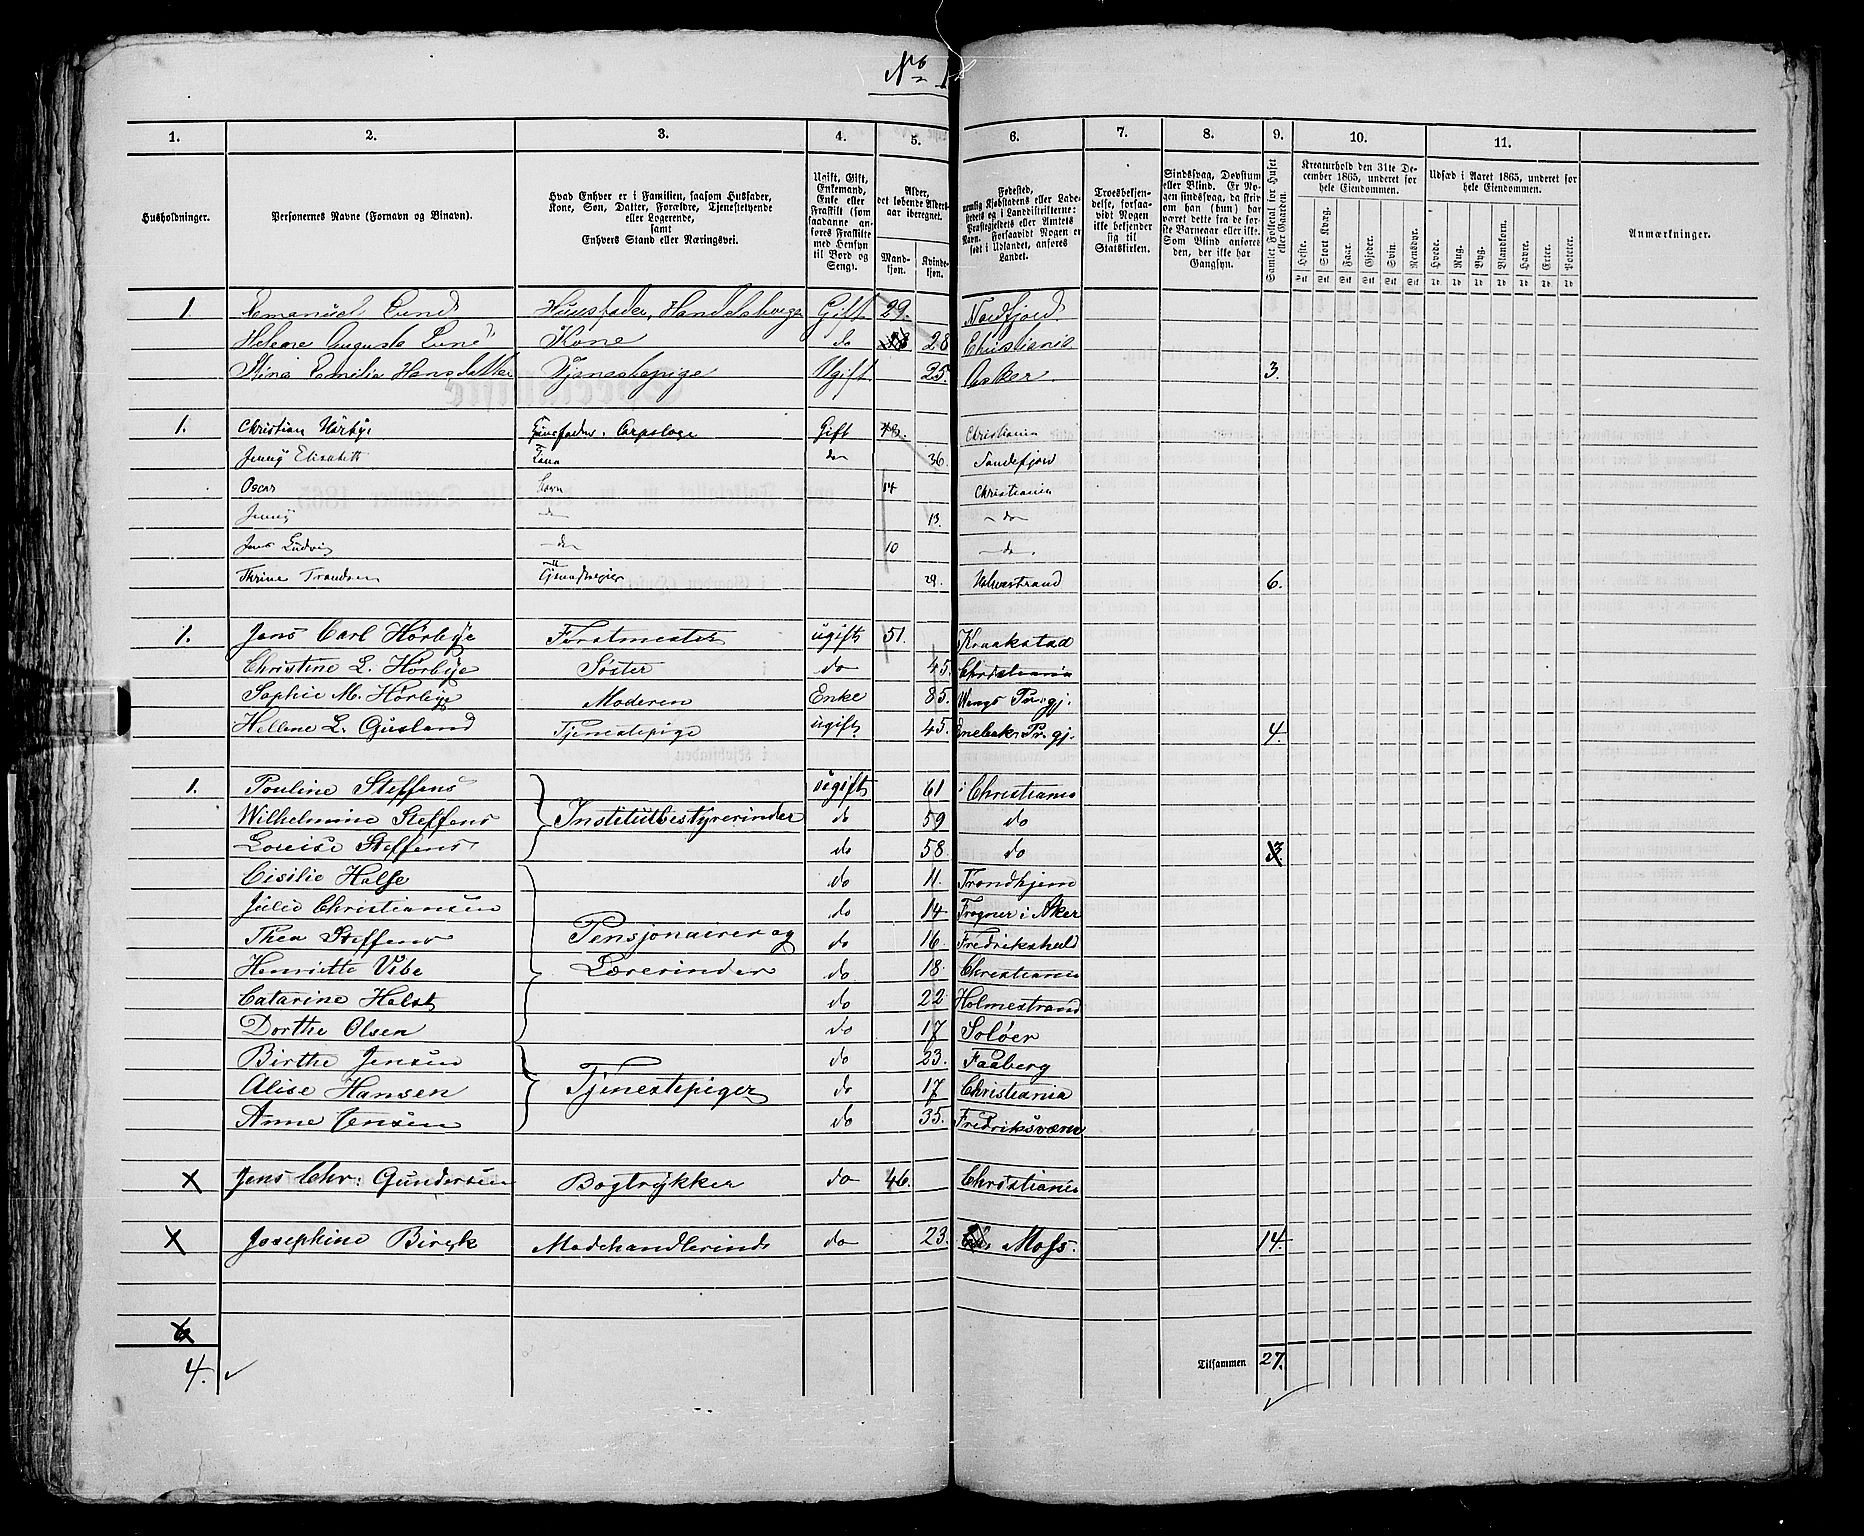 No 1
1. 2. 3. 4. 5. 6. 7. 8. 9. 10. 11.
Husholdninger.
Personernes Navne (Fornavn og Binavn).
Hvad Enhver er i Familien, saasom Husfader,
Kone, Søn, Datter, Forældre, Tjenestetyende
eller Logerende,
samt
Enhvers Stand eller Næringsvei.
Ugift, Gift,
Enkemand,
Enke eller
Fraskilt (som
saadanne an-
føres Fraskilte
med Hensyn
til Bord og
Seng).
Alder,
det løbende Alders-
aar iberegnet.
Mand-
kjøn.
Kvinde-
kjøn.
Fødested,
nemlig Kjøbstadens eller Lade-
stedets og i Landdistrikterne:
Præstegjeldets eller Amtets
Navn. Forsaavidt Nogen er
født i Udlandet, anføres
Landet.
Troesbekjen-
delse, forsaa-
vidt Nogen
ikke bekjender
sig til
Statskirken.
Sindssvag, Døvstum
eller Blind. Er No-
gen sindssvag, da skriv
om han (hun) har
været dette fra de før-
ste Barneaar eller ikke.
Som Blind anføres
den, der ikke har
Gangsyn.
Samlet Folketal for Huset
eller Gaarden.
Kreaturhold den 31te De-
cember 1865, underet for
hele Eiendommen.
Heste. Stort Kvæg. Faar. Gjeder. Svin. Rensdyr.
Stk Stk Stk Stk Stk Stk
Udsæd i Aaret 1865, underet for
hele Eiendommen.
Hvede. Rug. Byg. Blandkorn. Havre. Erter. Poteter.
Td Td Td Td Td Td Td
Anmærkninger.
1 Emanuel Lund Huusfader, Gift 29. Nordfjord
Helene Augusta Lund Kone do 28 Christiania
Stina Emilia Hansdatter Tjenestepige Ugift 25. Asker 3.
1. Christian Hørbye Gift 43. Christiania
Jenny Elisabeth Kone do 36. Sandefjord
Oscar Børn 14 Christiania
Jenny do 13. do
Jens Ludvig do 10 do
Thrine Trandsen 29. Holmestrand 6.
1. Jens Carl Hørbye Forstmester ugift 51. Kraakstad
Christine L. Hørbye Søster do 45. Christiania
Sophie M. Hørbye Moderen Enke 85. Præstgj.
Hellene L. Gusland Tjenestepige ugift 45. Enebak Prgj. 4.
1. Pouline Steffens ugift 61 i Christiania
Wilhelmine Steffens Institutbestyrerinder do 59 do
Lovise Steffens do 58. do 3
Cisilie Halse do 11. Trondhjem
Julie Christiansen do 14 Frogner i Aker
Thea Steffens Pensjonairer og do 16 Fredrikshald
Henriette Vibe Lærerinder do 18. Christiania
Catarine Holst do 22 Holmestrand
Dorthe Olsen do 17 Soløer
Birthe Jensen do 23. Faaberg
Alise Hansen Tjenestepiger do 17 Christiania
Anne Jensen do 35. Fredriksværn
x Jens Chr. Gundersen Bogtrykker do 46. Christiania
x Josephine Birck Modehandlerinde do 23. Moss. 14.
6
4. Tilsammen 27.